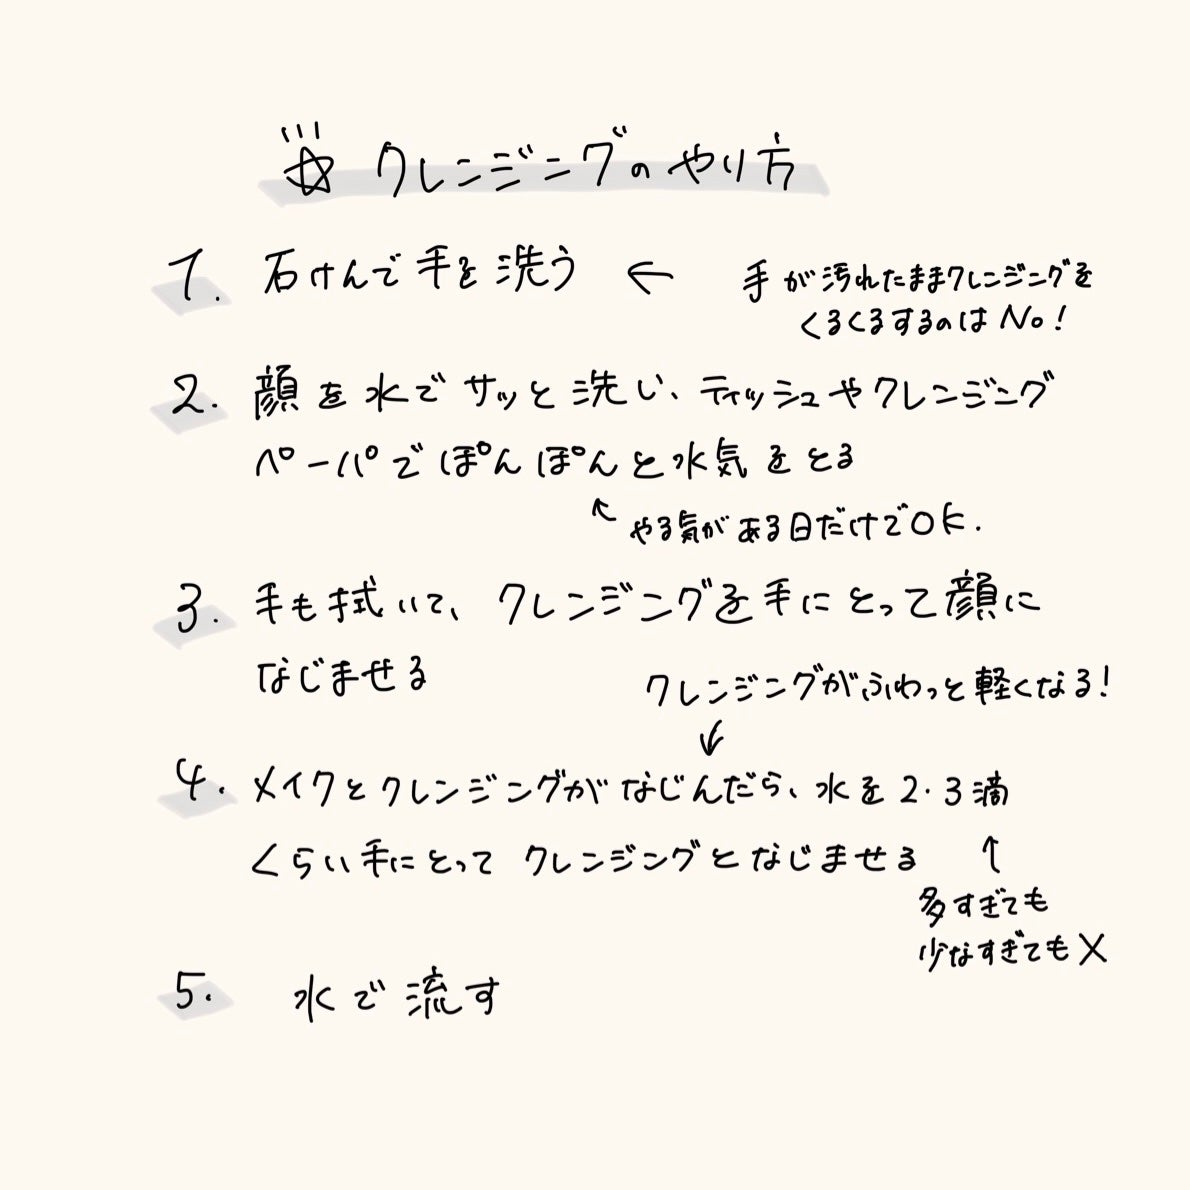 ☆ クレンジングのやり方
1. 石けんで手を洗う ← 手が汚れたままクレンジングを
くるくるするのはNo!
2. 顔を水でサッと洗い、ティッシュやクレンジング
ペーパーでぽんぽんと水気をとる
↖ やる気がある日だけでOK.
3. 手も拭いて、クレンジングを手にとって顔に
なじませる
クレンジングがふわっと軽くなる!
↓
4. メイクとクレンジングがなじんだら、水を2・3滴
くらい手にとってクレンジングとなじませる ↑
多すぎても
少なすぎても×
5. 水で流す